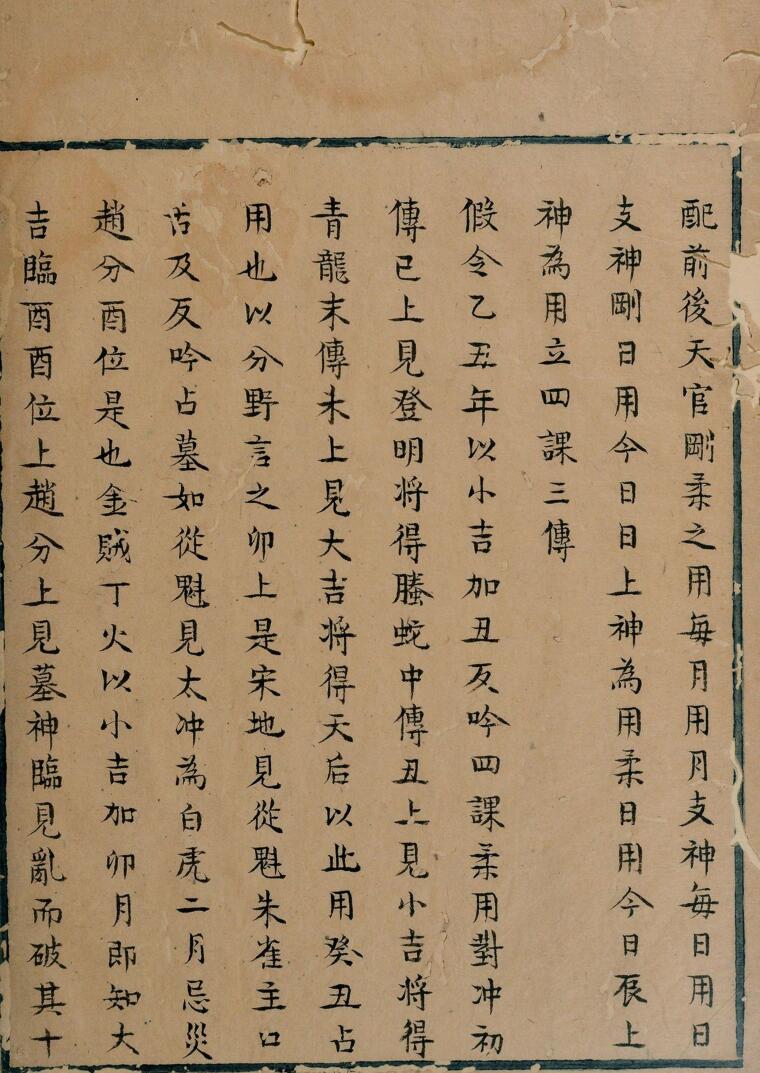 配前後天官剛柔之用每月用月支神每日用日
支神剛日用今日日上神為用柔日用今日辰上
神為用立四課三傳
假令乙丑年以小吉加丑反吟四課柔用對冲初
傳巳上見登明将得螣蛇中傳丑上見小吉将得
青龍末傳未上見大吉将得天后以此用癸丑占
用也以分野言之卯上是宋地見從魁朱雀主口
舌及反吟占墓如從魁見太冲為白虎二月忌災
趙分酉位是也金賊丁火以小吉加卯月即知大
吉臨酉酉位上趙分上見墓神臨見亂而破其十